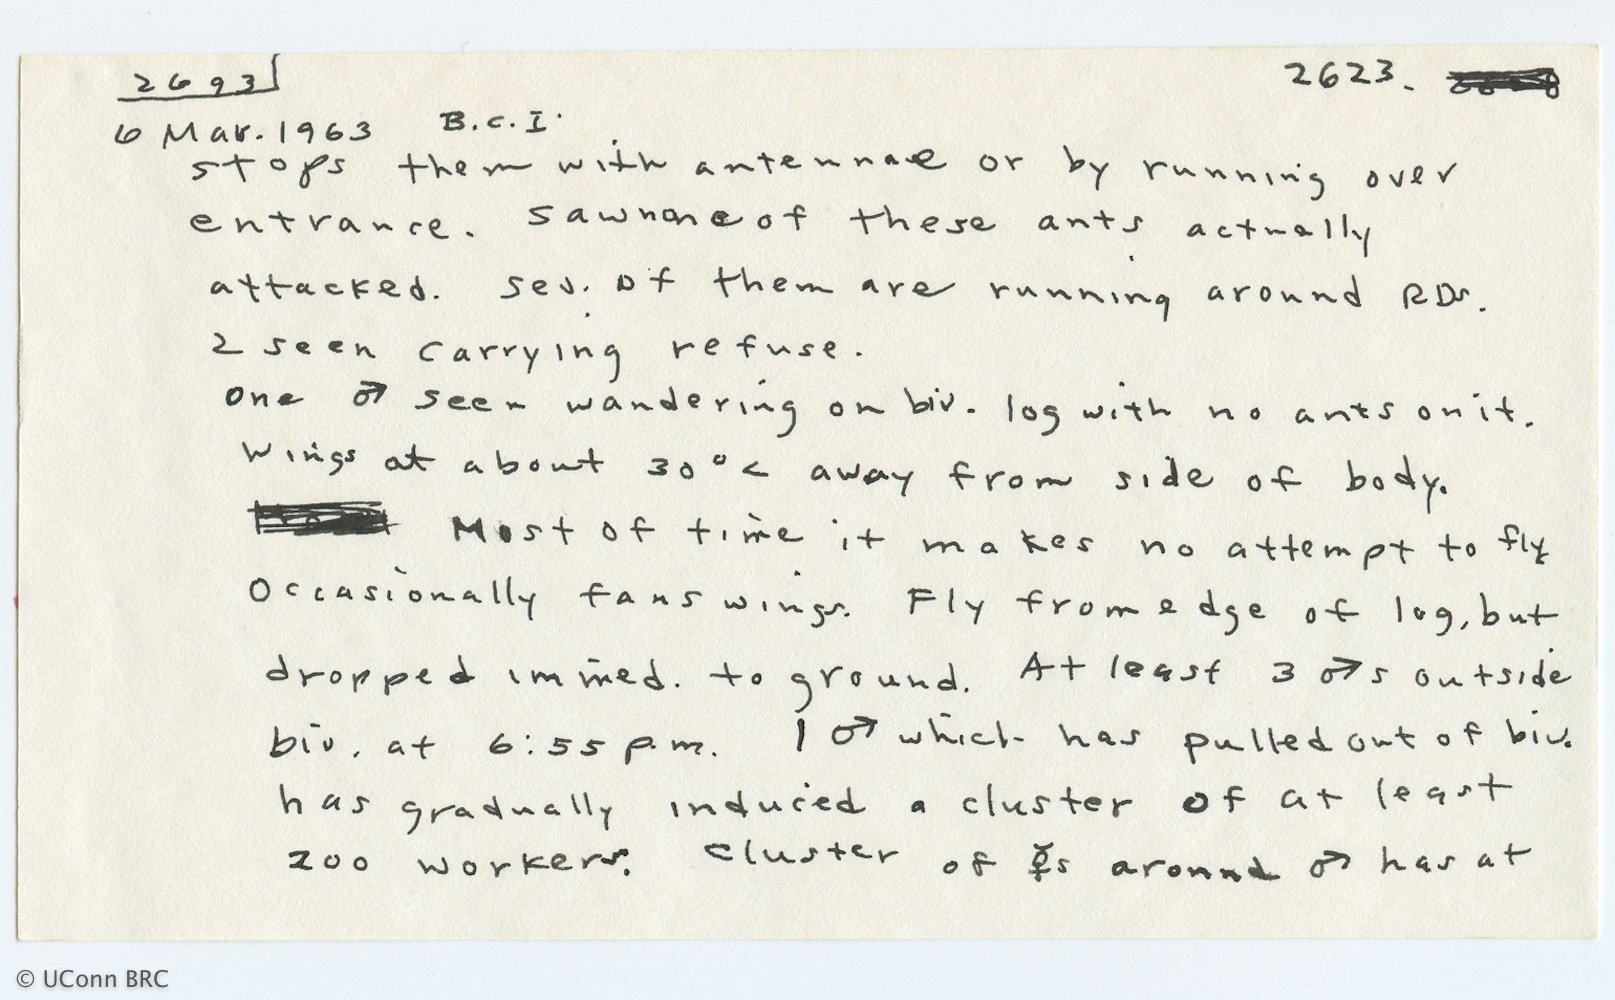 2693 2623.
6 Mar. 1963 B.C.I.
stops them with antennae or by running over
entrance. Saw none of these ants actually
attacked. Sev. of them are running around RDs.
2 seen carrying refuse.
One ♂ seen wandering on biv. log with no ants on it.
Wings at about 30° < away from side of body.
Most of time it makes no attempt to fly
Occasionally fans wings. Fly from edge of log, but
dropped immed. to ground. At least 3 ♂s outside
biv. at 6:55 p.m. 1 ♂ which has pulled out of biv.
has gradually induced a cluster of at least
200 workers. Cluster of ☿s around ♂ has at
© UConn BRC